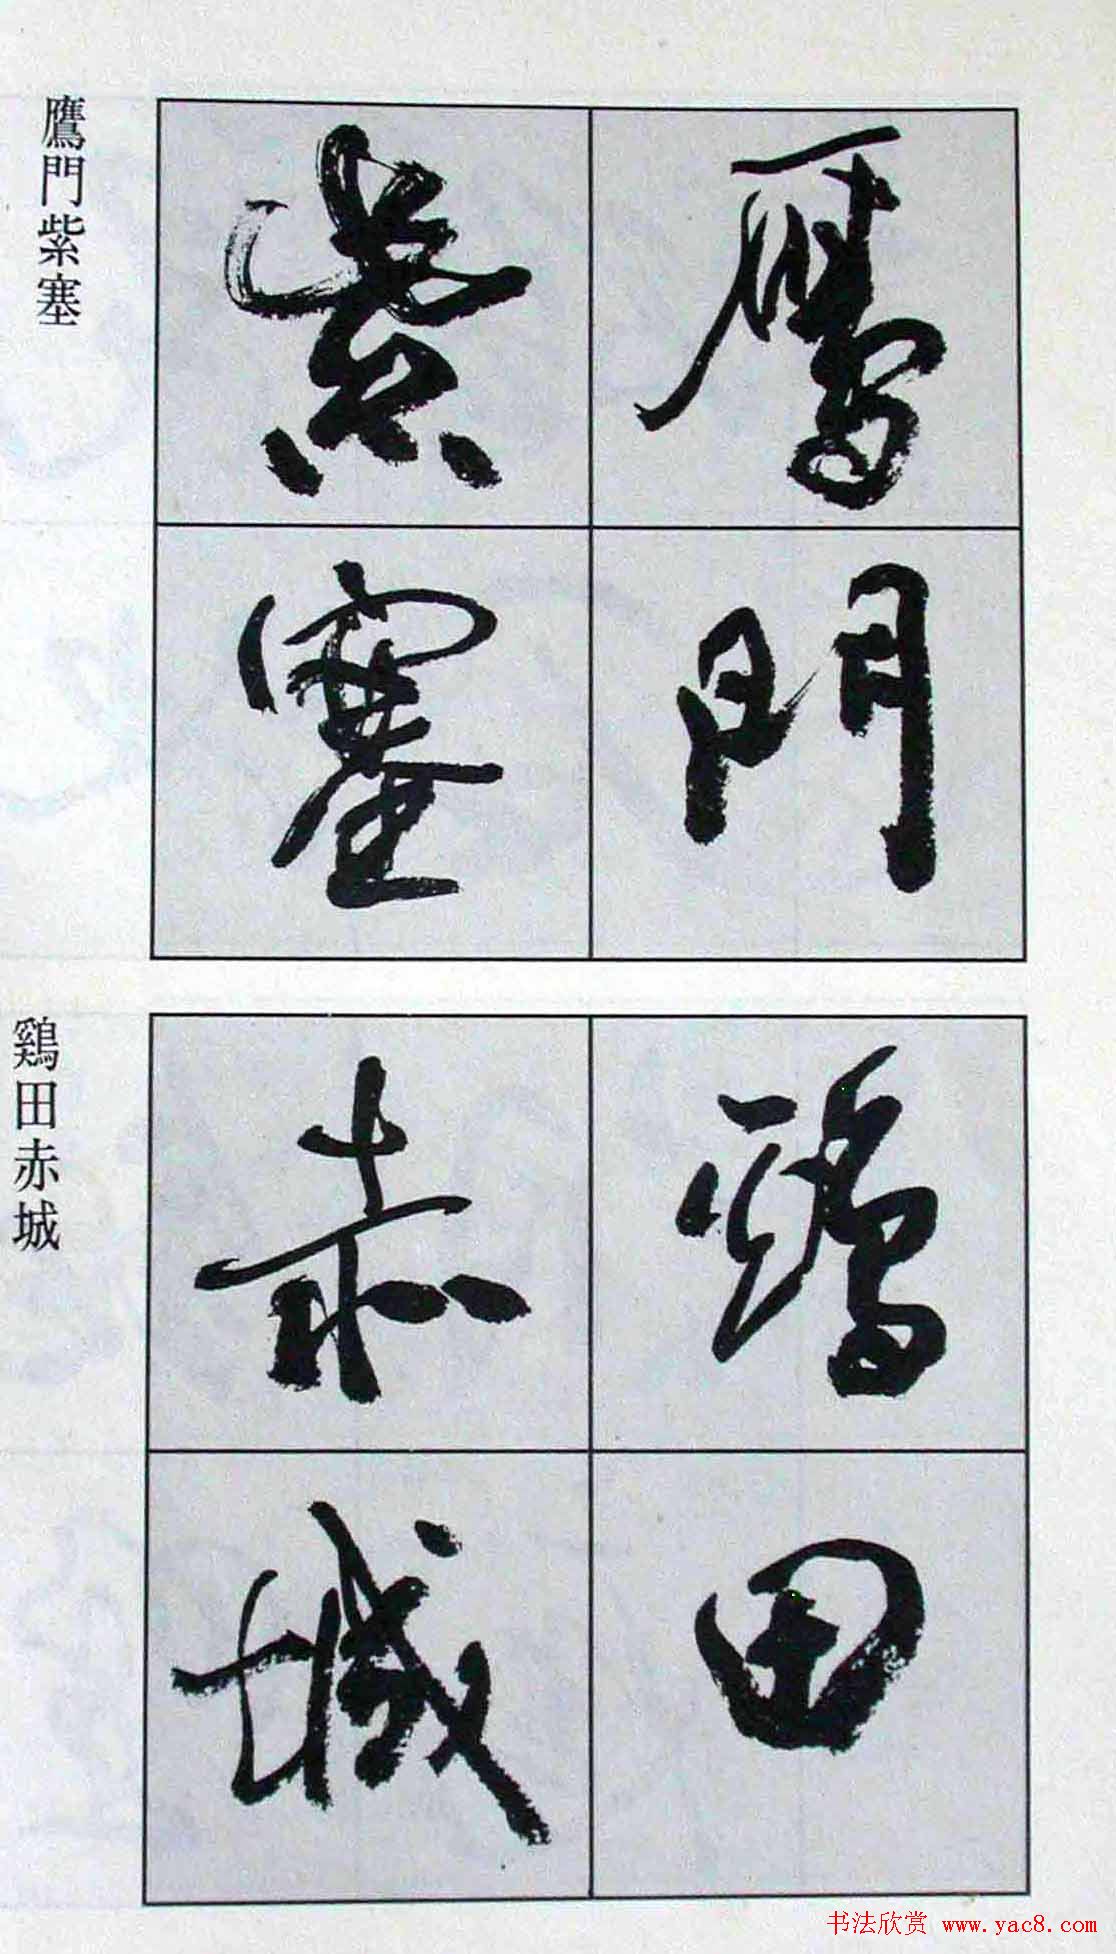 鷹門紫塞
鷹門
紫塞
鷄田赤城
鷄田
赤城
书法欣赏 www.yac8.com